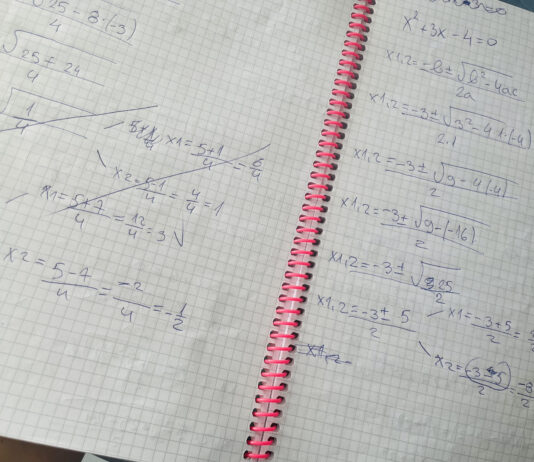 √25-8·(-3)
4
√25-24
4
√1
4
x1=5+1=6
4 4
x2=5-1=4=1
4 4
x1=5+7=12=3
4 4
x2=5-7=-2=-1
4 4 2
x²+3x-4=0
x1,2=-b±√b²-4ac
2a
x1,2=-3±√3²-4·1·(-4)
2·1
x1,2=-3±√9-4(-4)
2
x1,2=-3±√9-(-16)
2
x1,2=-3±√25
2
x1,2=-3±5
2
x1=-3+5=
2
x2=-3-5=-8
2 2